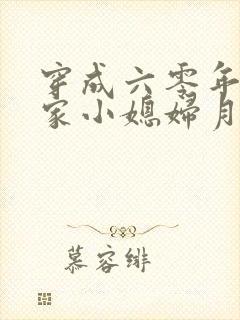 穿成六零年
家小媳妇月
慕容绯